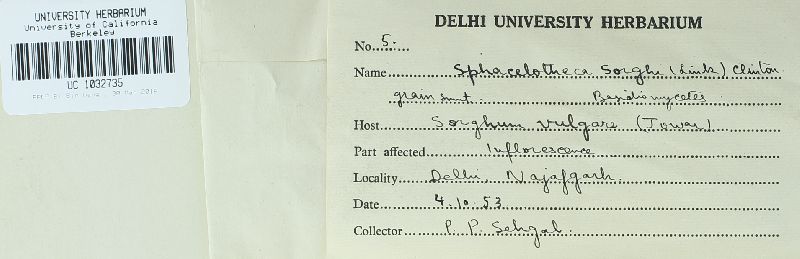 UNIVERSITY HERBARIUM
University of California
Berkeley
UC 1032735
DELHI UNIVERSITY HERBARIUM
No. 5.
Name Sphacelotheca Sorghi (Link) Clinton
grain smut Basidiomycetes
Host Sorghum vulgare (Jowar)
Part affected Inflorescence
Locality Delhi, Najafgarh.
Date 4.10.53
Collector P. P. Sehgal.